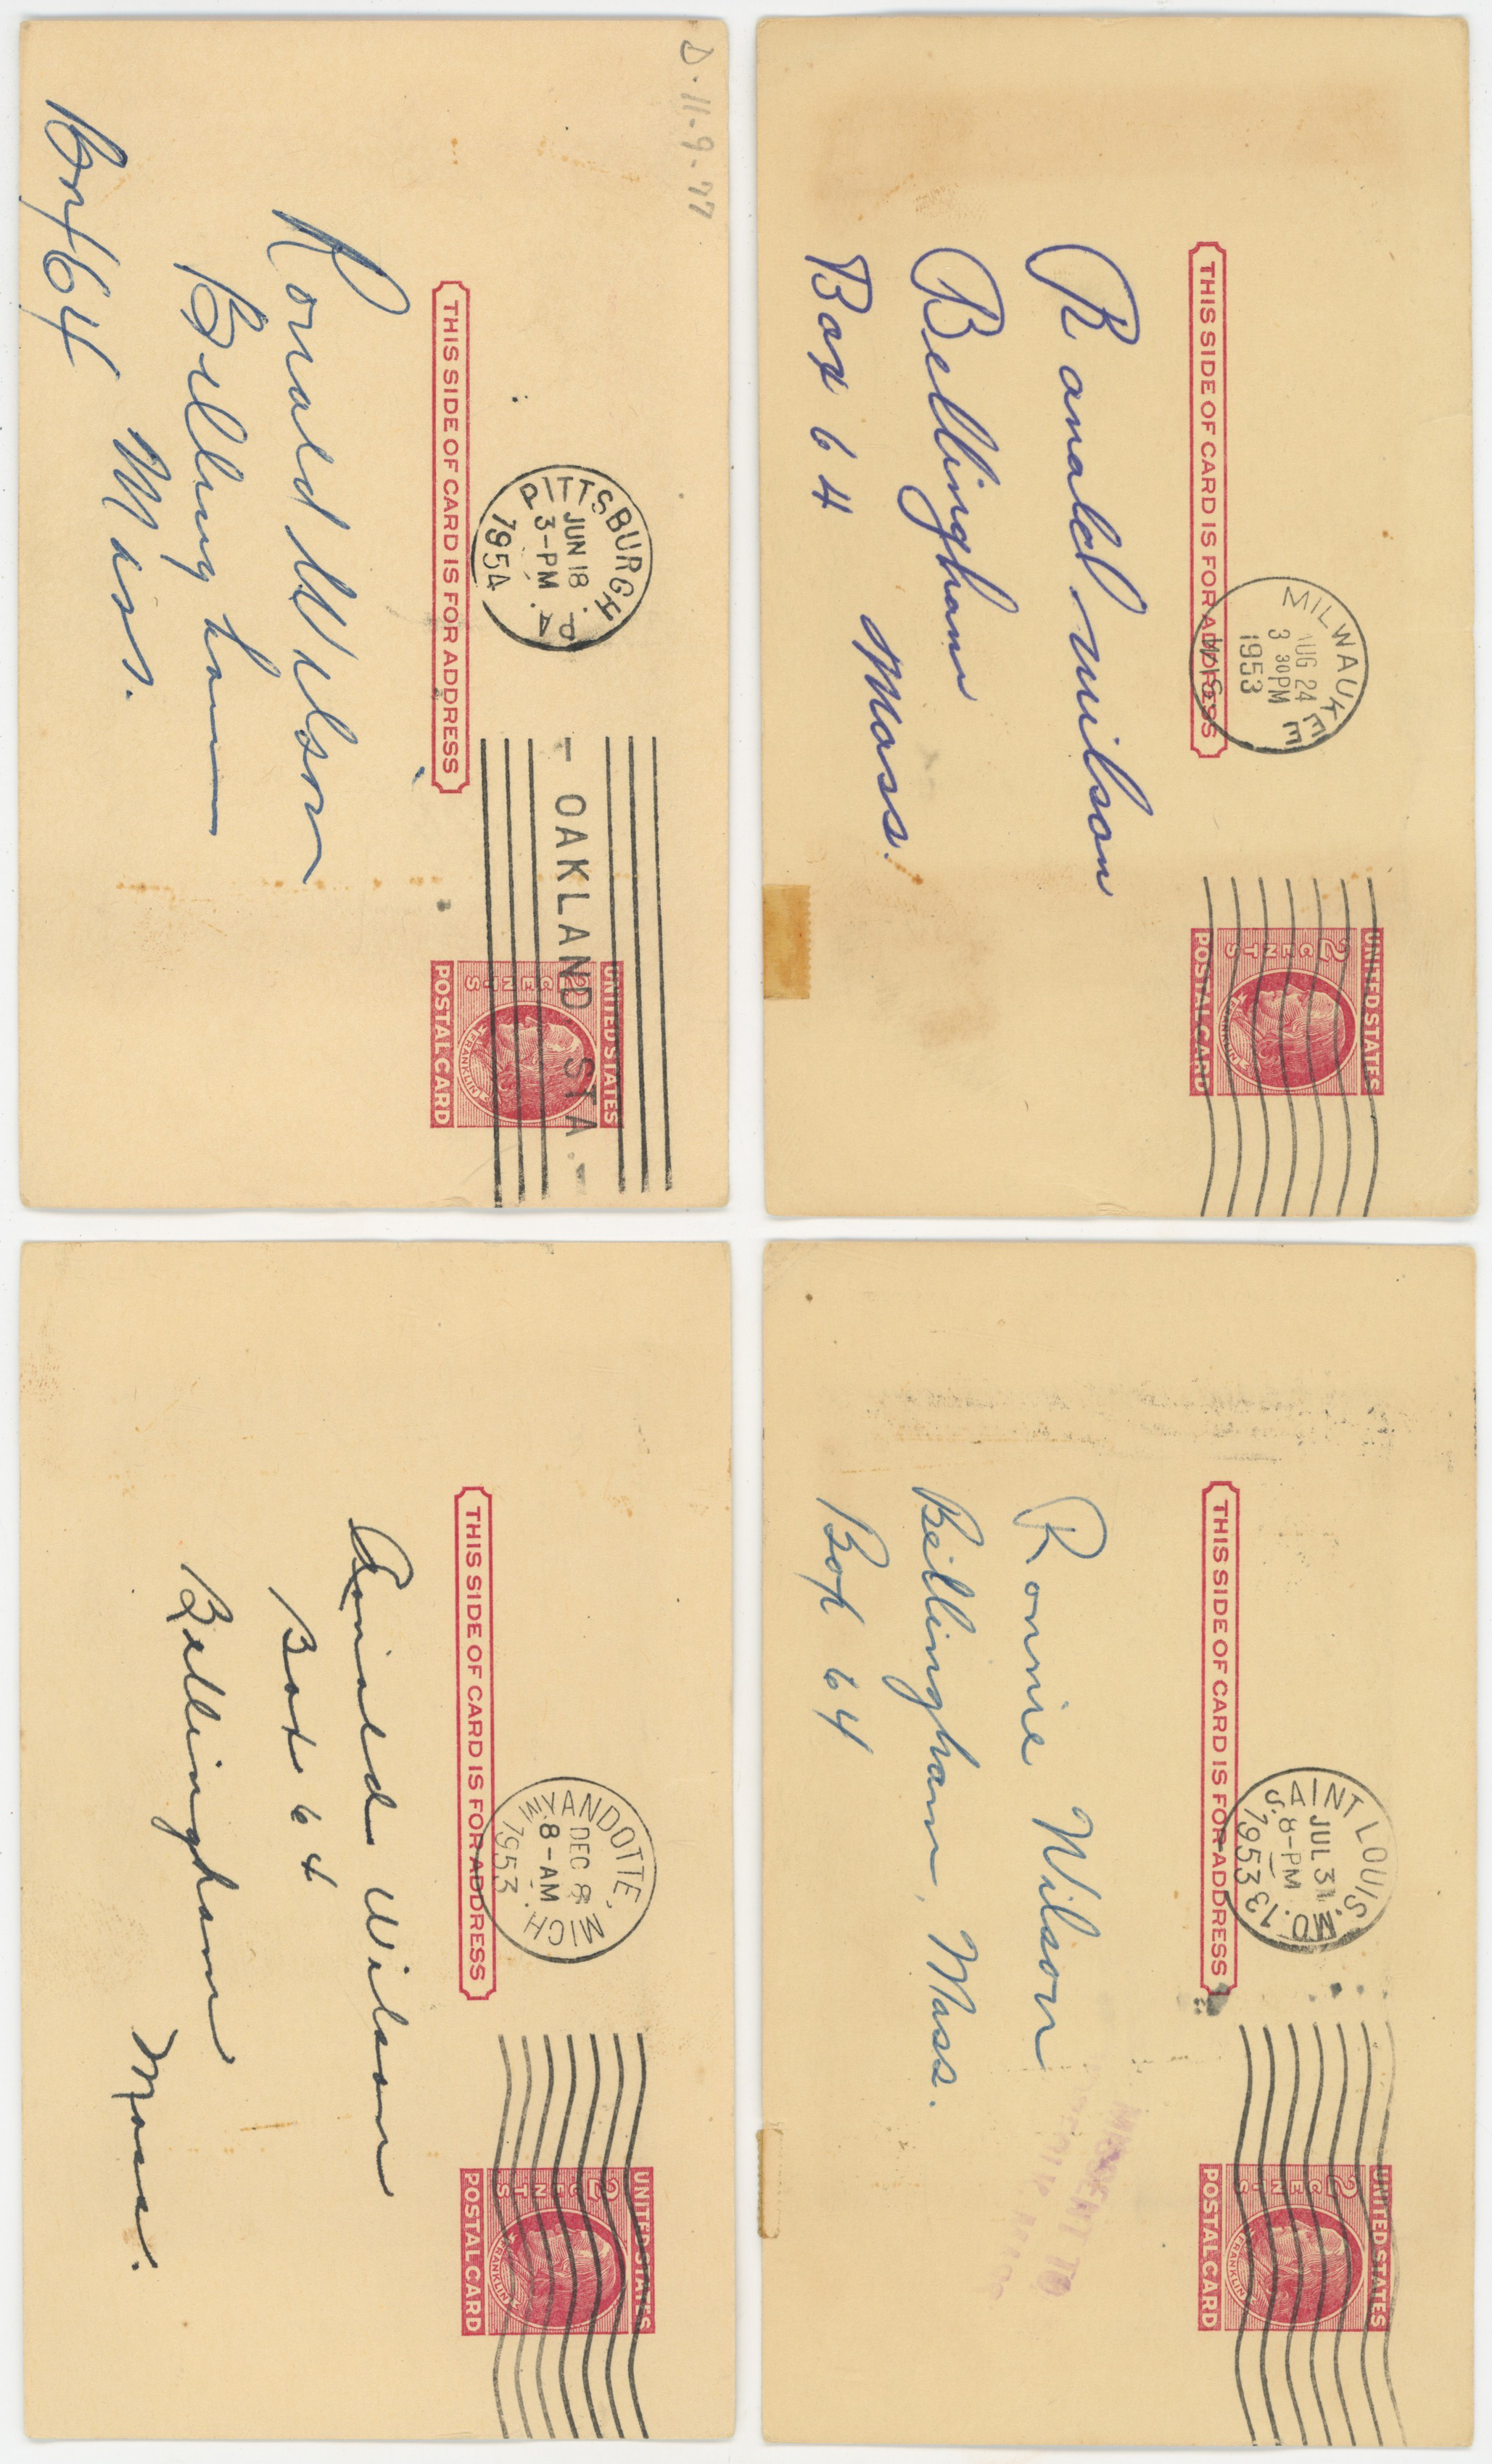 D-11-9-77
PITTSBURGH PA
JUN 18
3-PM
1954
- OAKLAND. STA. -
UNITED STATES
2 CENTS
FRANKLIN
POSTAL CARD
THIS SIDE OF CARD IS FOR ADDRESS
Ronald Wilson
Bellingham
Mass.
Box 64
MILWAUKEE
AUG 24
3 30 PM
1953
WIS.
UNITED STATES
2 CENTS
FRANKLIN
POSTAL CARD
THIS SIDE OF CARD IS FOR ADDRESS
Ronald Wilson
Bellingham
Mass.
Box 64
WYANDOTTE, MICH.
DEC 8
8-AM
1953
UNITED STATES
2 CENTS
FRANKLIN
POSTAL CARD
THIS SIDE OF CARD IS FOR ADDRESS
Ronald Wilson
Box 64
Bellingham
Mass.
SAINT LOUIS, MO. 13
JUL 31
8-PM
1953
UNITED STATES
2 CENTS
FRANKLIN
POSTAL CARD
THIS SIDE OF CARD IS FOR ADDRESS
Ronnie Wilson
Bellingham, Mass.
Box 64
MISSENT TO